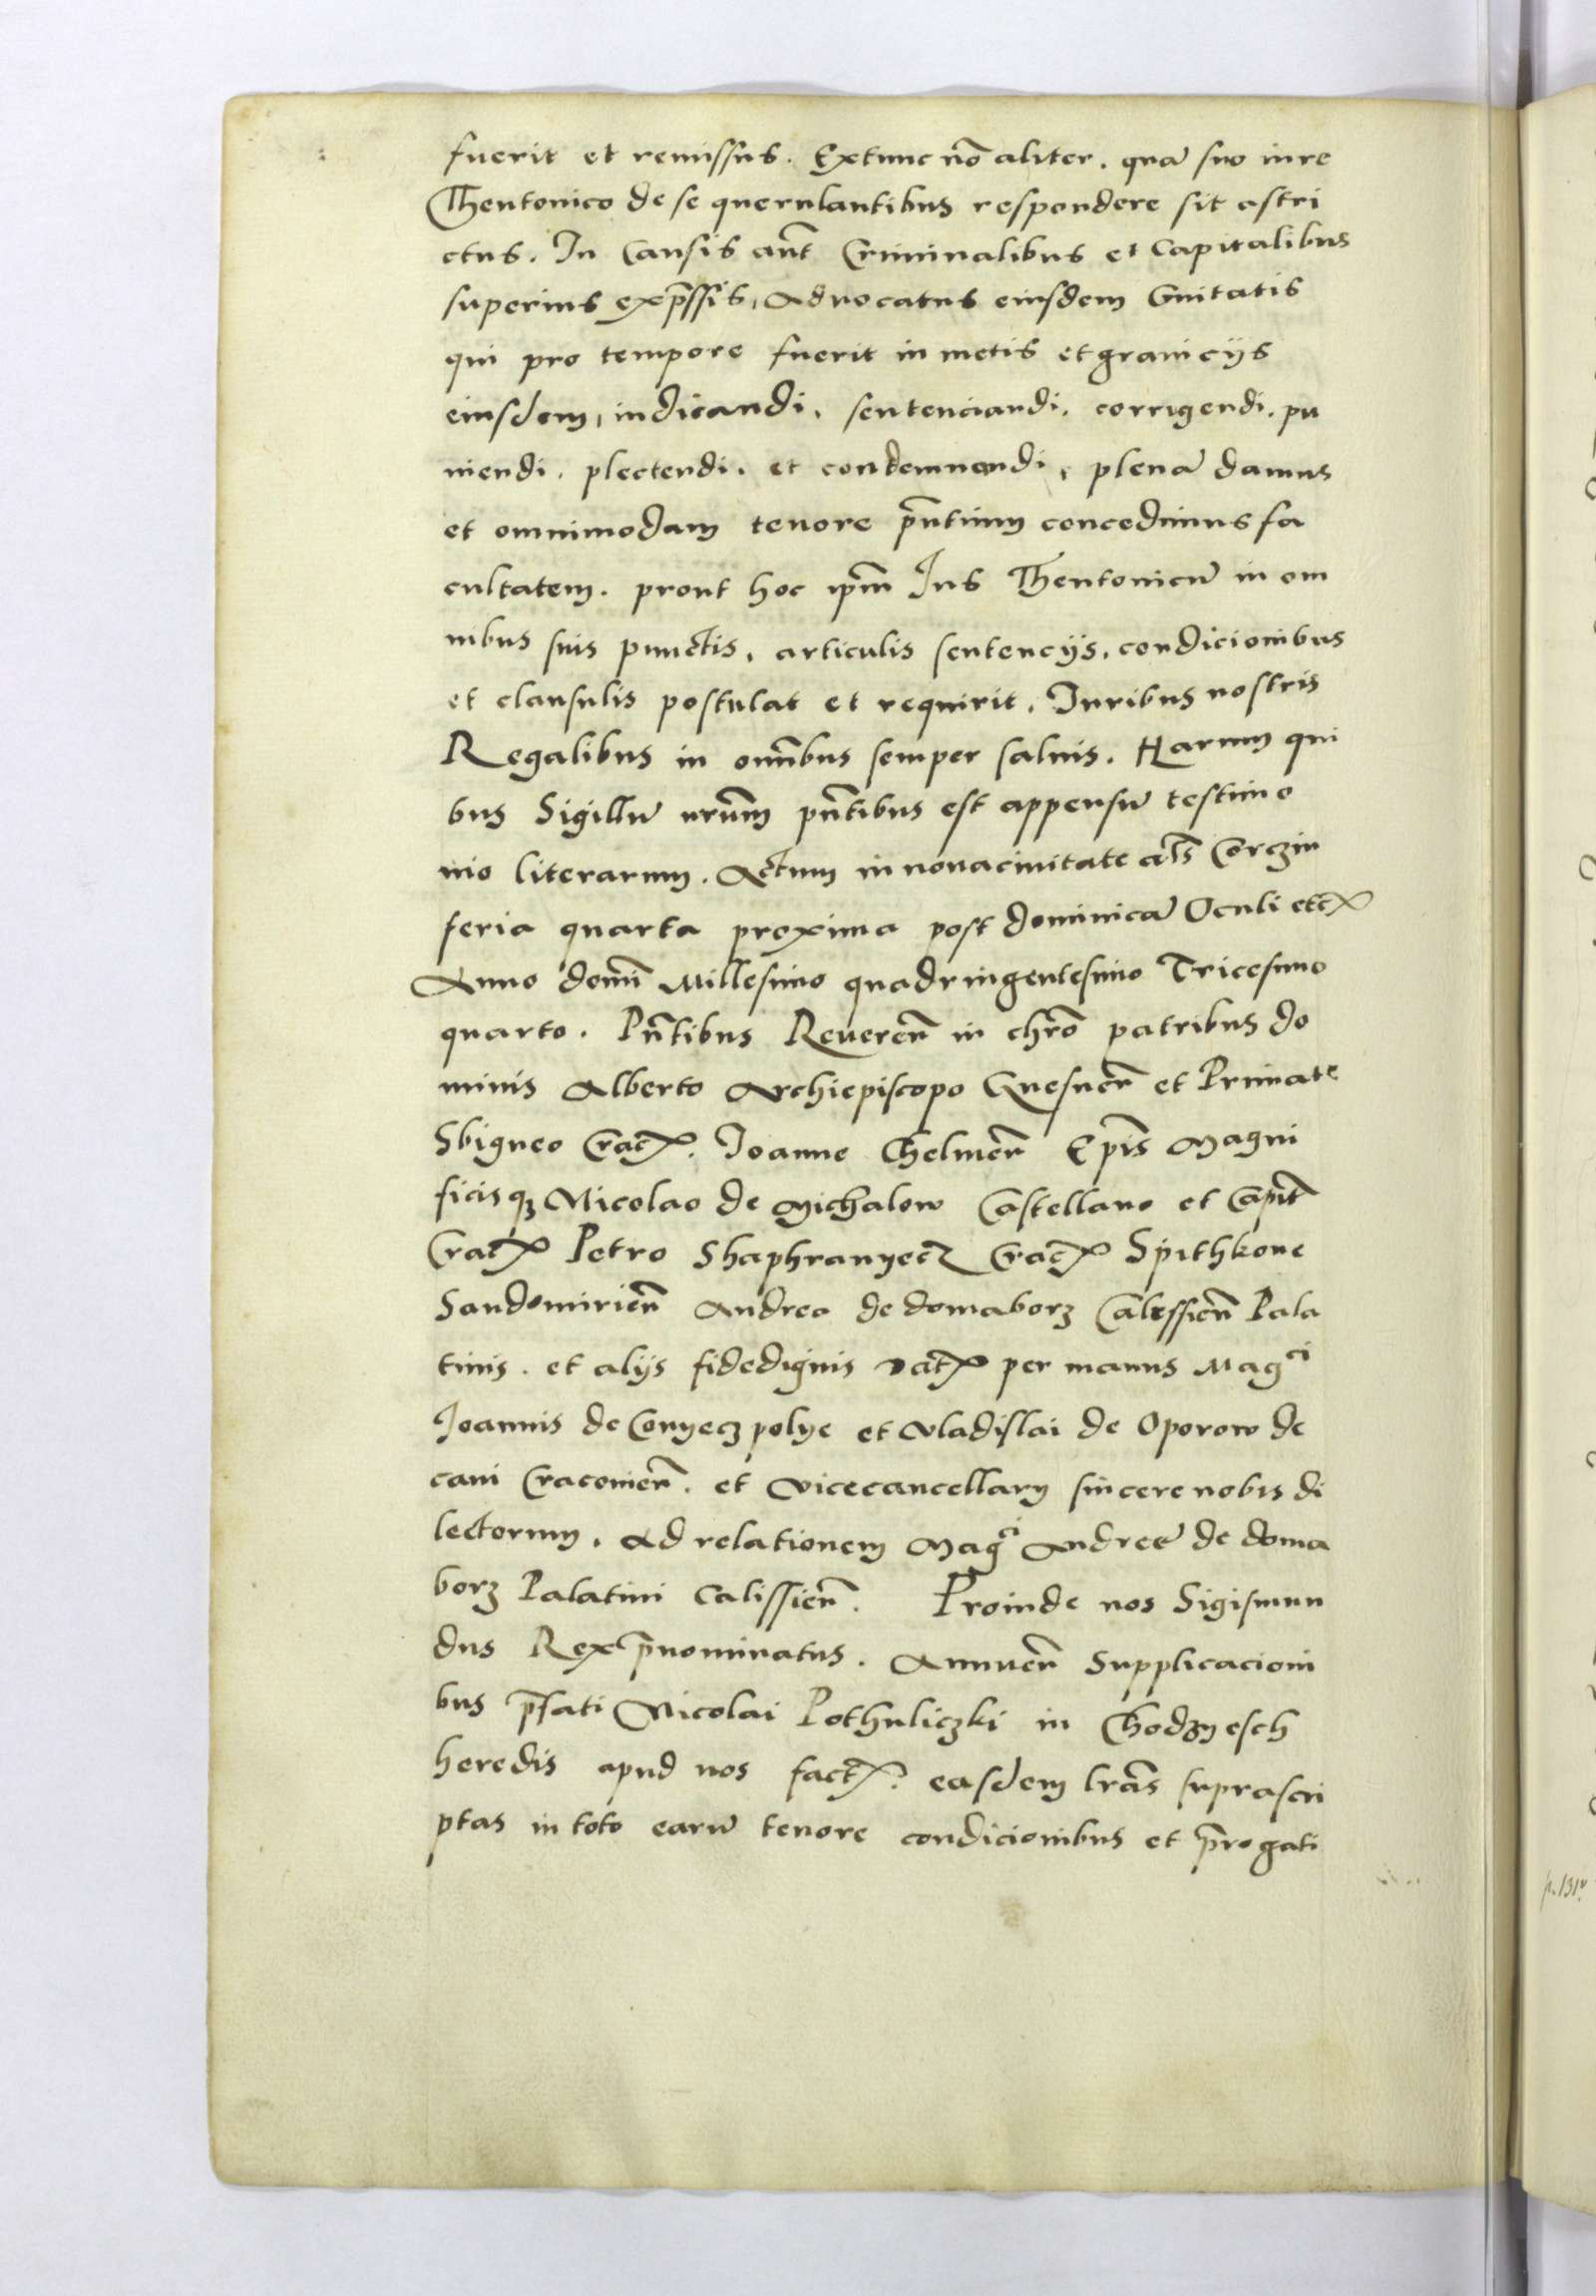 fuerit et remissus. Extunc nō aliter. quā suo iure
Theutonico de se querulantibus respondere sit astri
ctus. In Causis aut̄ Criminalibus et Capitalibus
superius exp̄ssis, Aduocatus eiusdem Ciuitatis
qui pro tempore fuerit in metis et granicijs
eiusdem, iudicandi, sentenciandi. corrigendi. pu
niendi. plectendi. et condemnandi, plenā damus
et omnimodam tenore p̄ntium concedimus fa
cultatem. prout hoc ip̄m Ius Theutonicū in om
nibus suis punctis, articulis sentencijs, condicionibus
et clausulis postulat et requirit. Iuribus nostris
Regalibus in omn̄ibus semper saluis. Harum qui
bus Sigillū nr̄um pn̄tibus est appensū testimo
nio literarum. Actum in noua ciuitate al̄s Corczin
feria quarta proxima post dominicā Oculi etcꝭ
Anno domī Millesimo quadringentesimo Tricesimo
quarto. Pn̄tibus Reueren̄ in chr̄o patribus do
minis Alberto Archiepiscopo Gnesnen̄ et Primate
Sbigneo Cracꝭ. Joanne Chelmen̄ Ep̄is Magni
ficisqꝫ Nicolao de Michalow Castellano et Capit̄
Cracꝭ Petro Shaphranyecz Cracꝭ Spithkone
Sandomirien̄ Andrea de domaborz Calissien̄ Pala
tinis. et alijs fidedignis Datꝭ per manus Magci
Joannis de Conyeczpolye et Vladislai de Oporow de
cani Cracouien̄. et Vicecancellary sincere nobis di
lectorum. Ad relationem Magci Andree de doma
borz Palatini Calissien̄. Proinde nos Sigismun
dus Rex p̄nominatus. Annuen̄ Supplicacioni
bus p̄fati Nicolai Pothuliczki in Chodzyesch
heredis apud nos factꝭ. easdem lr̄as suprascri
ptas in toto earū tenore condicionibus et p̄rogati
p. 131v.